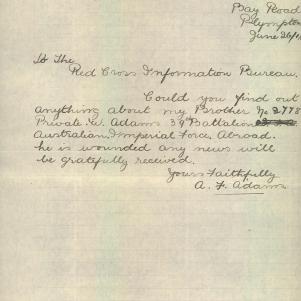 Bay Road
Plympton
June 26/
To The
Red Cross Information Bureau.
Could you find out
anything about my Brother No 2778
Private W. Adams 39th Battalion
Australian Imperial Force Abroad.
he is wounded any news will
be gratefully received.
Yours Faithfully
A. F. Adams